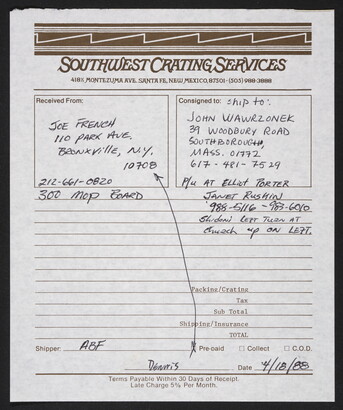 SOUTHWEST CRATING SERVICES
418½ MONTEZUMA AVE. SANTA FE, NEW MEXICO, 87501 • (505) 988-3888
Received From:
JOE FRENCH
110 PARK AVE.
BRONXVILLE, N.Y.
10708
212-661-0820
300 MOP BOARD
Consigned to: ship to:
JOHN WAWRZONEK
39 WOODBURY ROAD
SOUTHBOROUGH,
MASS. 01772
617-481-7529
P/U AT ELLIOT PORTER
JANET RUSHIN
988-5116 - 983-6010
LEFT TURN AT
up ON LEFT.
Packing/Crating
Tax
Sub Total
Shipping/Insurance
TOTAL
Shipper: ABF
Pre-paid □ Collect □ C.O.D.
Dennis
Date 4/18/88
Terms Payable Within 30 Days of Receipt.
Late Charge 5% Per Month.